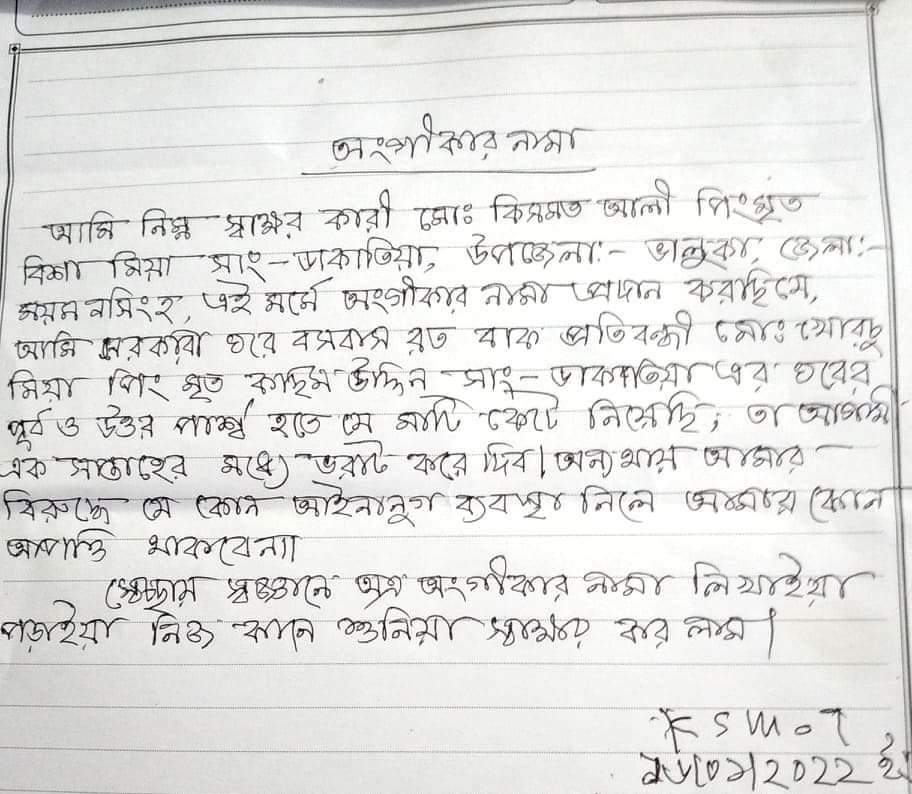 অংগীকার নামা
আমি নিম্ন স্বাক্ষর কারী মোঃ কিসমত আলী পিং মৃত
বিশা মিয়া সাং-ডাকাতিয়া, উপজেলা:- ভালুকা, জেলা:-
ময়মনসিংহ, এই মর্মে অংগীকার নামা প্রদান করছি যে,
আমি সরকারী ঘরে বসবাস রত বাক প্রতিবন্ধী মোঃ খোরচু
মিয়া পিং মৃত কাছিম উদ্দিন সাং-ডাকাতিয়া এর ঘরের
পূর্ব ও উত্তর পার্শ্ব হতে যে মাটি কেটে নিয়েছি, তা আগামী
এক সাপ্তাহের মধ্যে ভরাট করে দিব। অন্যথায় আমার
বিরুদ্ধে যে কোন আইনানুগ ব্যবস্থা নিলে আমার কোন
আপত্তি থাকবেনা।
স্বেচ্ছায় স্বজ্ঞানে অত্র অংগীকার নামা লিখাইয়া
পড়াইয়া নিজ কানে শুনিয়া স্বাক্ষর কর লাম।
KSMOT
2022 ইং